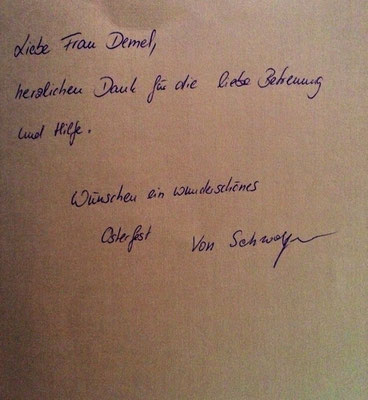 Liebe Frau Demel,
herzlichen Dank für die liebe Betreuung
und Hilfe.
Wünschen ein wunderschönes
Osterfest
Von